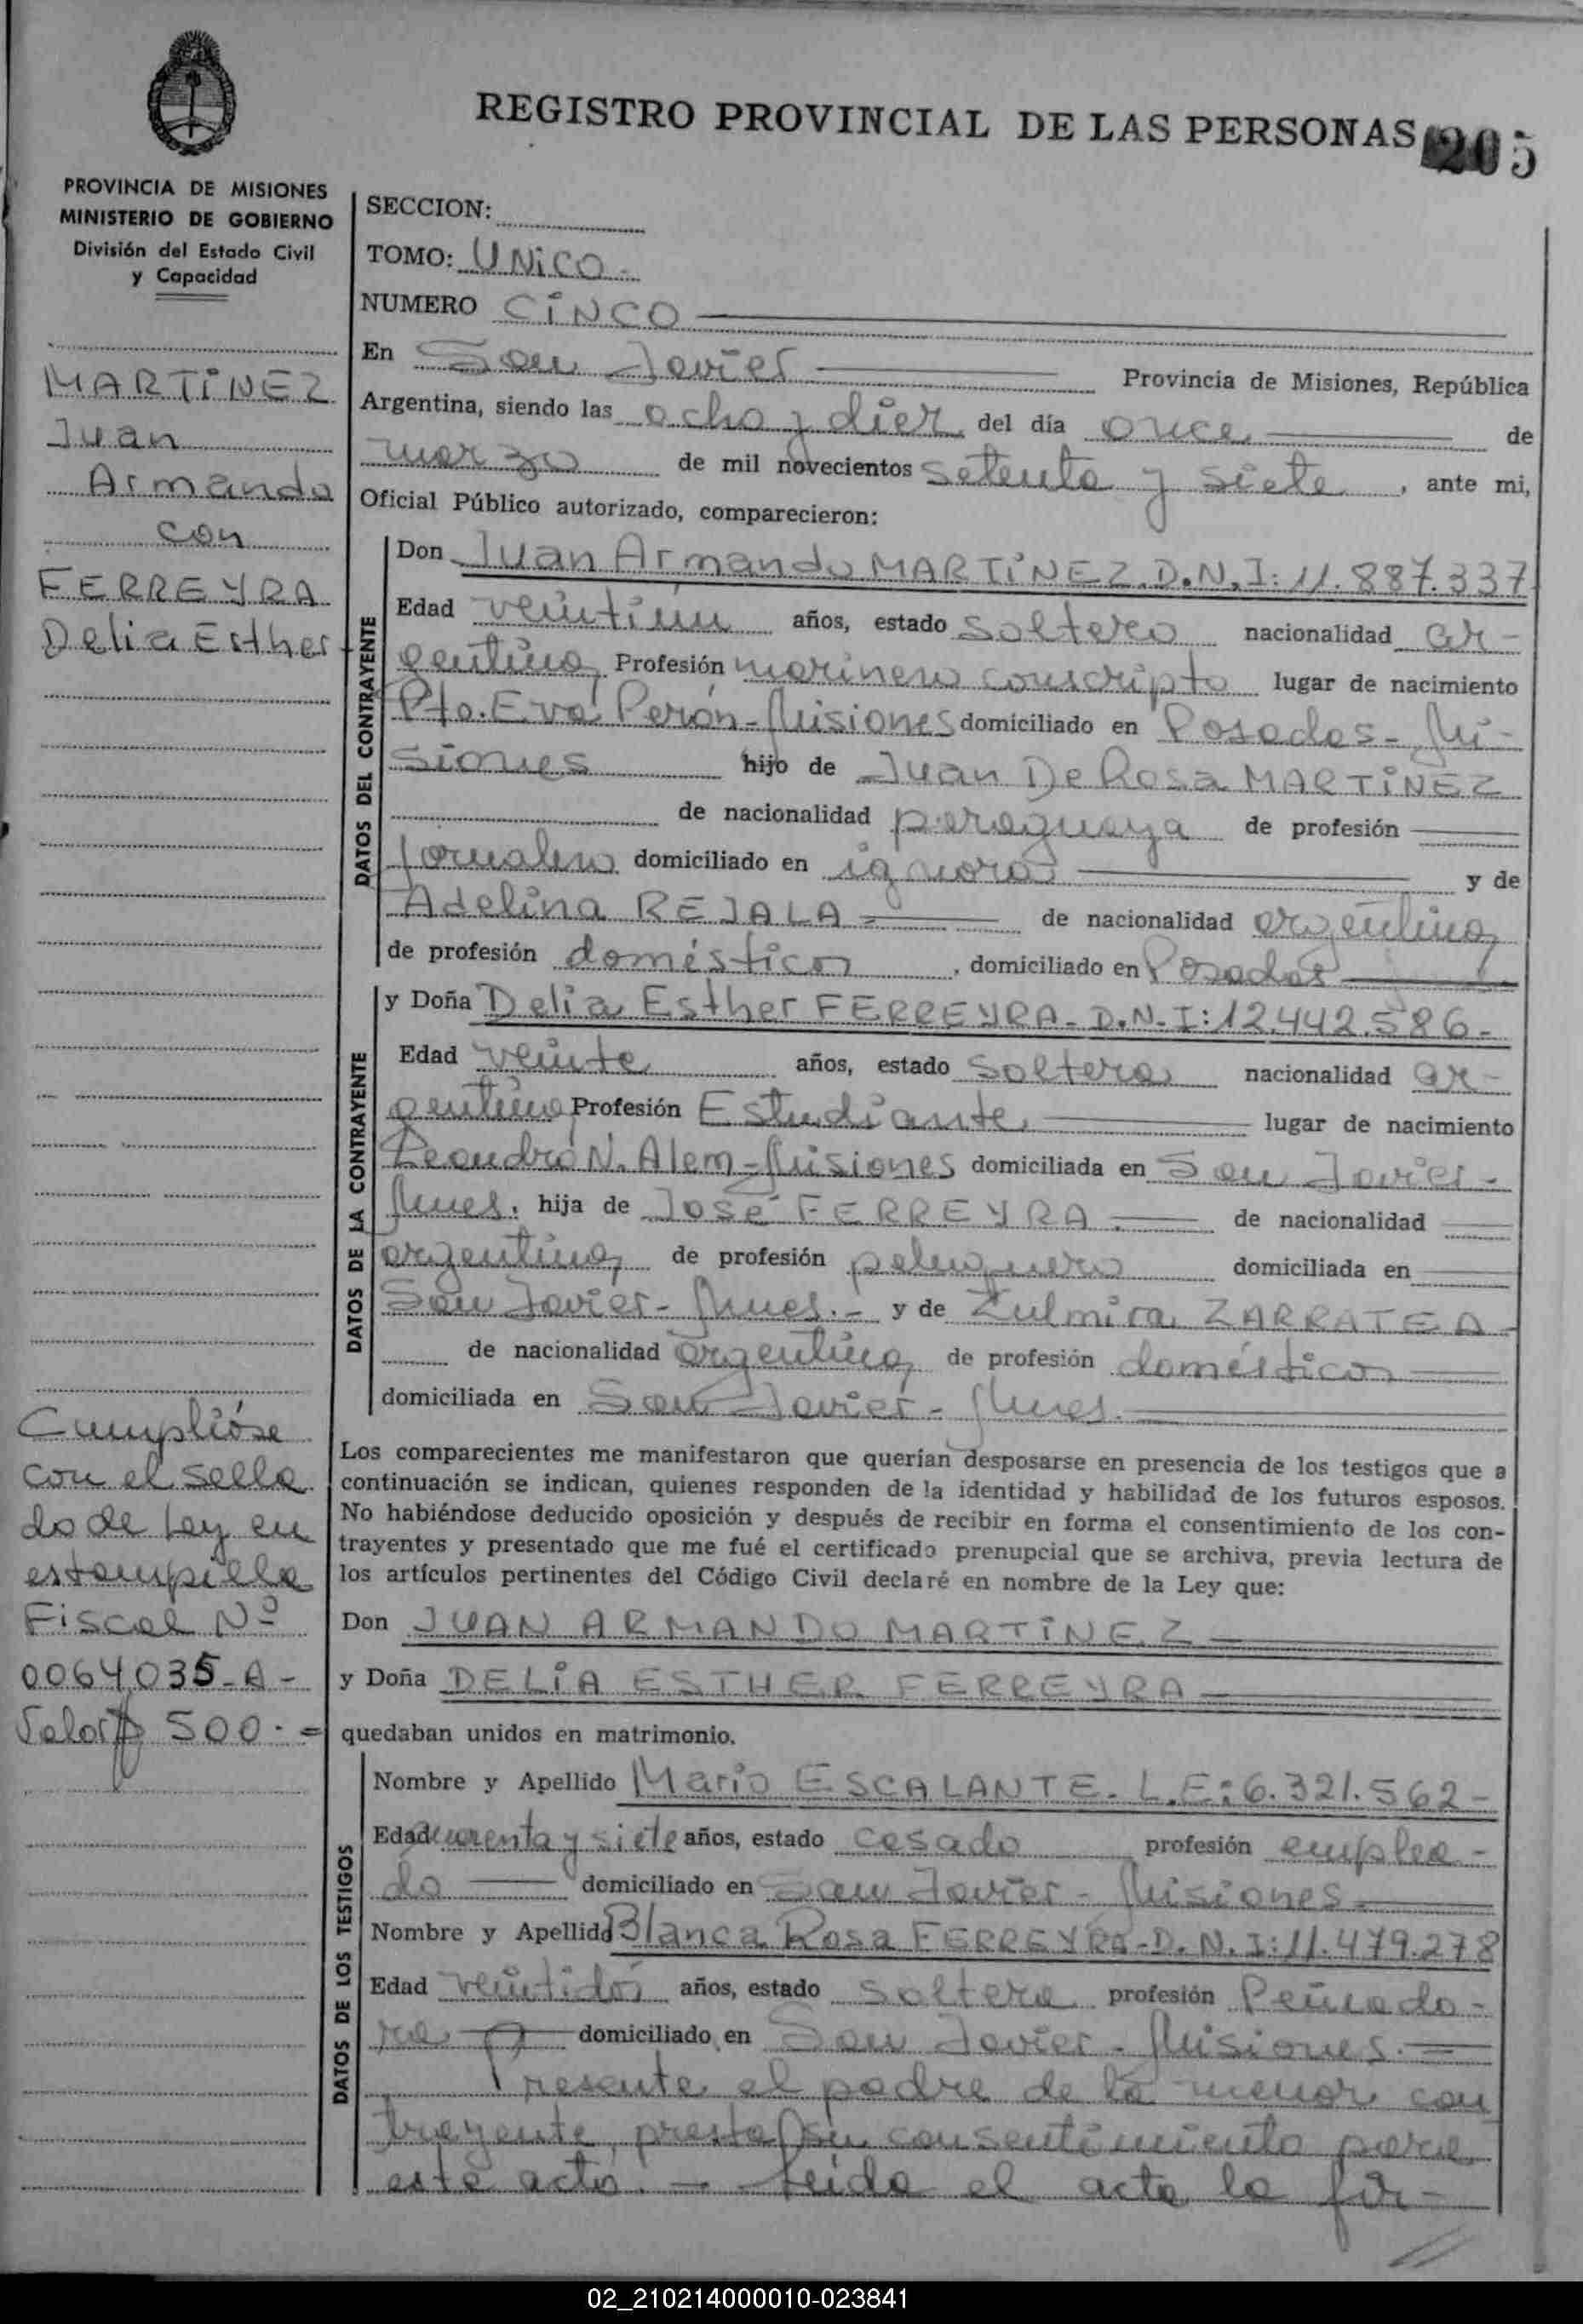 REGISTRO PROVINCIAL DE LAS PERSONAS 205
PROVINCIA DE MISIONES
MINISTERIO DE GOBIERNO
División del Estado Civil
y Capacidad
MARTINEZ
Juan
Armando
con
FERREYRA
Delia Esther
Cumplióse
con el sella
do de Ley en
estampilla
Fiscal Nº
0064035-A-
Valor $ 500.=
SECCION:
TOMO: UNICO.
NUMERO CINCO
En San Javier Provincia de Misiones, República
Argentina, siendo las ocho y diez del día once de
marzo de mil novecientos setenta y siete, ante mi,
Oficial Público autorizado, comparecieron:
DATOS DEL CONTRAYENTE
Don Juan Armando MARTINEZ. D.N.I: 11.887.337
Edad veintiún años, estado soltero nacionalidad ar-
gentina, Profesión marinero conscripto lugar de nacimiento
Pto. Eva Perón-Misiones domiciliado en Posadas- Mi-
siones hijo de Juan De Rosa MARTINEZ
de nacionalidad paraguaya de profesión
jornalero domiciliado en ignora y de
Adelina REJALA de nacionalidad argentina,
de profesión doméstica, domiciliado en Posadas
DATOS DE LA CONTRAYENTE
y Doña Delia Esther FERREYRA- D.N.I: 12.442.586-
Edad veinte años, estado soltera nacionalidad ar-
gentina, Profesión Estudiante lugar de nacimiento
Leandro N. Alem-Misiones domiciliada en San Javier-
Mnes. hija de José FERREYRA. de nacionalidad
argentina, de profesión peluquero domiciliada en
San Javier- Mnes.- y de Zulmira ZARRATEA-
de nacionalidad argentina, de profesión doméstica
domiciliada en San Javier- Mnes.
Los comparecientes me manifestaron que querían desposarse en presencia de los testigos que a
continuación se indican, quienes responden de la identidad y habilidad de los futuros esposos.
No habiéndose deducido oposición y después de recibir en forma el consentimiento de los con-
trayentes y presentado que me fué el certificado prenupcial que se archiva, previa lectura de
los artículos pertinentes del Código Civil declaré en nombre de la Ley que:
Don JUAN ARMANDO MARTINEZ
y Doña DELIA ESTHER FERREYRA
quedaban unidos en matrimonio.
DATOS DE LOS TESTIGOS
Nombre y Apellido Mario ESCALANTE. L.E: 6.321.562-
Edad cuarenta y siete años, estado casado profesión emplea-
do domiciliado en San Javier- Misiones
Nombre y Apellido Blanca Rosa FERREYRA-D.N.I: 11.479.278
Edad veintidós años, estado soltera profesión Peinado-
ra domiciliado en San Javier- Misiones.
Presente el padre de la menor con
trayente, presta su consentimiento para
este acto. - Leída el acta la fir-
02_210214000010-023841